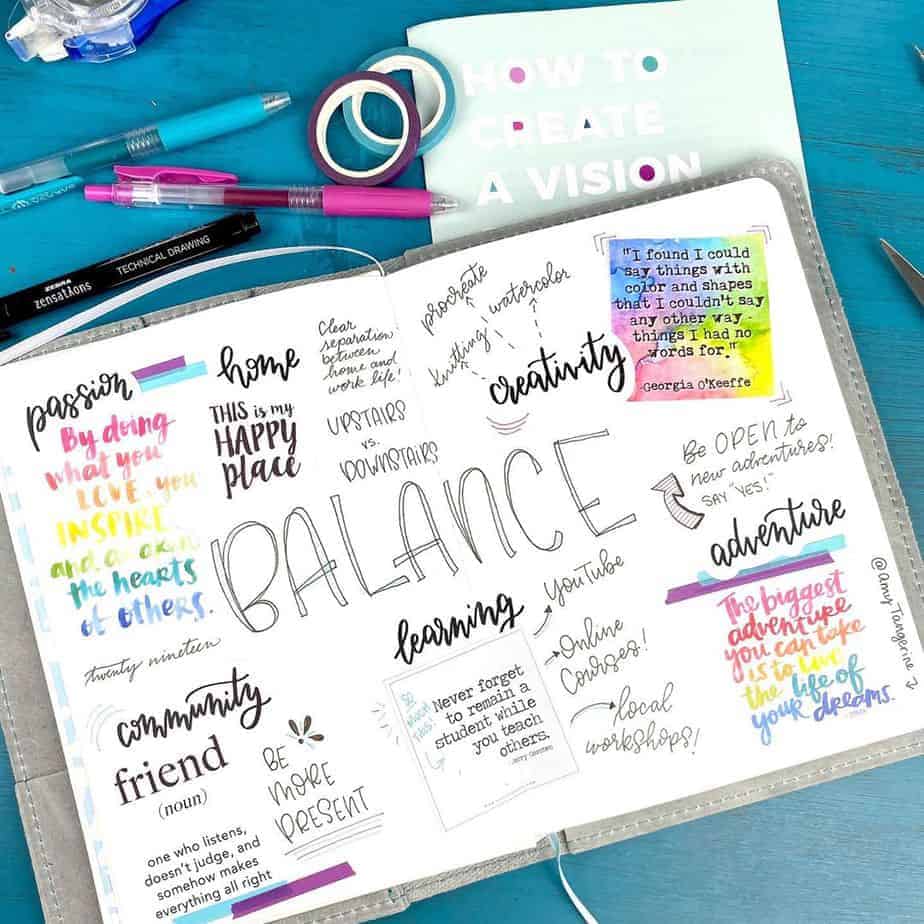 HOW TO
CREATE
A VISION
ZEBRA
zensations
TECHNICAL DRAWING
passion
By doing
what you
LOVE, you
INSPIRE
and awaken
the hearts
of others.
twenty nineteen
home
THIS is my
HAPPY
place
Clear
separation
between
home and
work life!
UPSTAIRS
vs.
DOWNSTAIRS
procreate
knitting
watercolor
creativity
"I found I could
say things with
color and shapes
that I couldn't say
any other way -
things I had no
words for."
-Georgia O'Keeffe
BALANCE
Be OPEN to
new adventures!
SAY "YES!"
adventure
The biggest
adventure
you can take
is to live
the life of
your dreams.
@amy Tangerine
learning
SO
MUCH
THIS!
Never forget
to remain a
student while
you teach
others.
YouTube
Online
Courses!
local
workshops!
community
friend
(noun)
one who listens,
doesn't judge, and
somehow makes
everything all right
BE
MORE
PRESENT